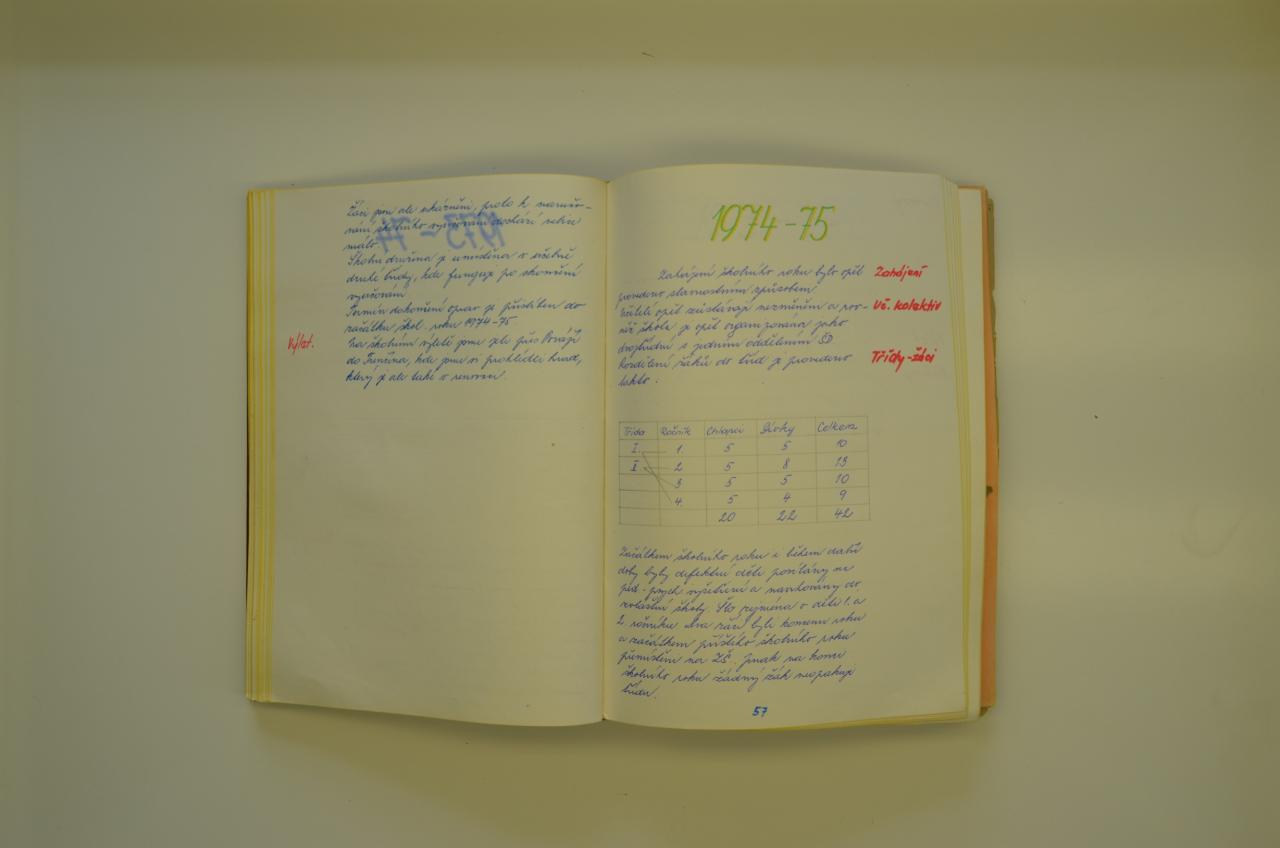 Žáci jsou ale ukáznění, proto k narušo-
vání školního vyučování dochází velice
málo.
Školní družina je umístěna v učebně
druhé třídy, kde funguje po skončení
vyučování.
Termín dokončení oprav je příslíben do
začátku škol. roku 1974-75
Výlet.
Na školním výletě jsme jeli přes Pováží
do Trenčína, kde jsme si prohlédli hrad,
který je ale také v renovaci.
1974-75
Zahájení školního roku bylo opět
Zahájení
provedeno slavnostním způsobem.
Učitelé opět zůstávají nezměněni a rov-
Uč. kolektiv
něž škola je opět organizována jako
dvojtřídní s jedním oddělením ŠD
Rozdělení žáků do tříd je provedeno
Třídy-žáci
takto:
Třída Ročník Chlapci Dívky Celkem
I. 1. 5 5 10
II. 2 5 8 13
3 5 5 10
4. 5 4 9
20 22 42
Začátkem školního roku i během další
doby byly defektní děti posílány na
ped.-psych vyšetření a navrhovány do
zvláštní školy. Šlo zejména o děti 1. a
2. ročníku. Dva žáci byli koncem roku
a začátkem příštího školního roku
přemístěni na ZŠ. Jinak na konci
školního roku žádný žák neopakuje
třídu.
57